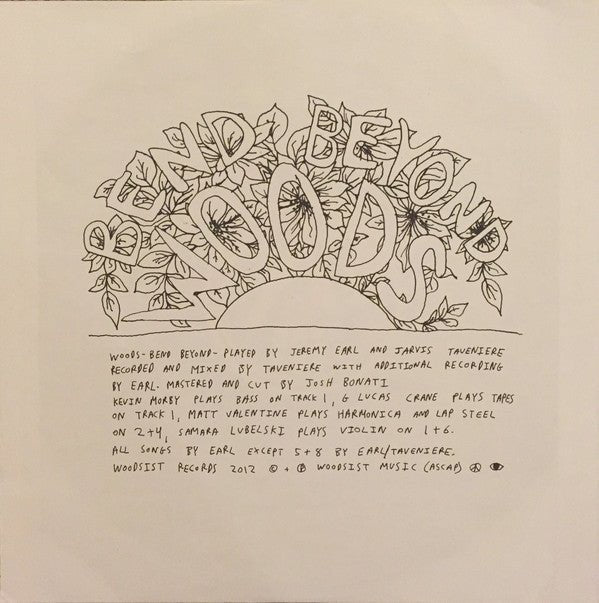 BEND BEYOND
WOODS
WOODS-BEND BEYOND- PLAYED BY JEREMY EARL AND JARVIS TAVENIERE
RECORDED AND MIXED BY TAVENIERE WITH ADDITIONAL RECORDING
BY EARL. MASTERED AND CUT BY JOSH BONATI
KEVIN MORBY PLAYS BASS ON TRACK 1, G LUCAS CRANE PLAYS TAPES
ON TRACK 1, MATT VALENTINE PLAYS HARMONICA AND LAP STEEL
ON 2+4, SAMARA LUBELSKI PLAYS VIOLIN ON 1+6.
ALL SONGS BY EARL EXCEPT 5+8 BY EARL/TAVENIERE.
WOODSIST RECORDS 2012 © + ℗ WOODSIST MUSIC (ASCAP)